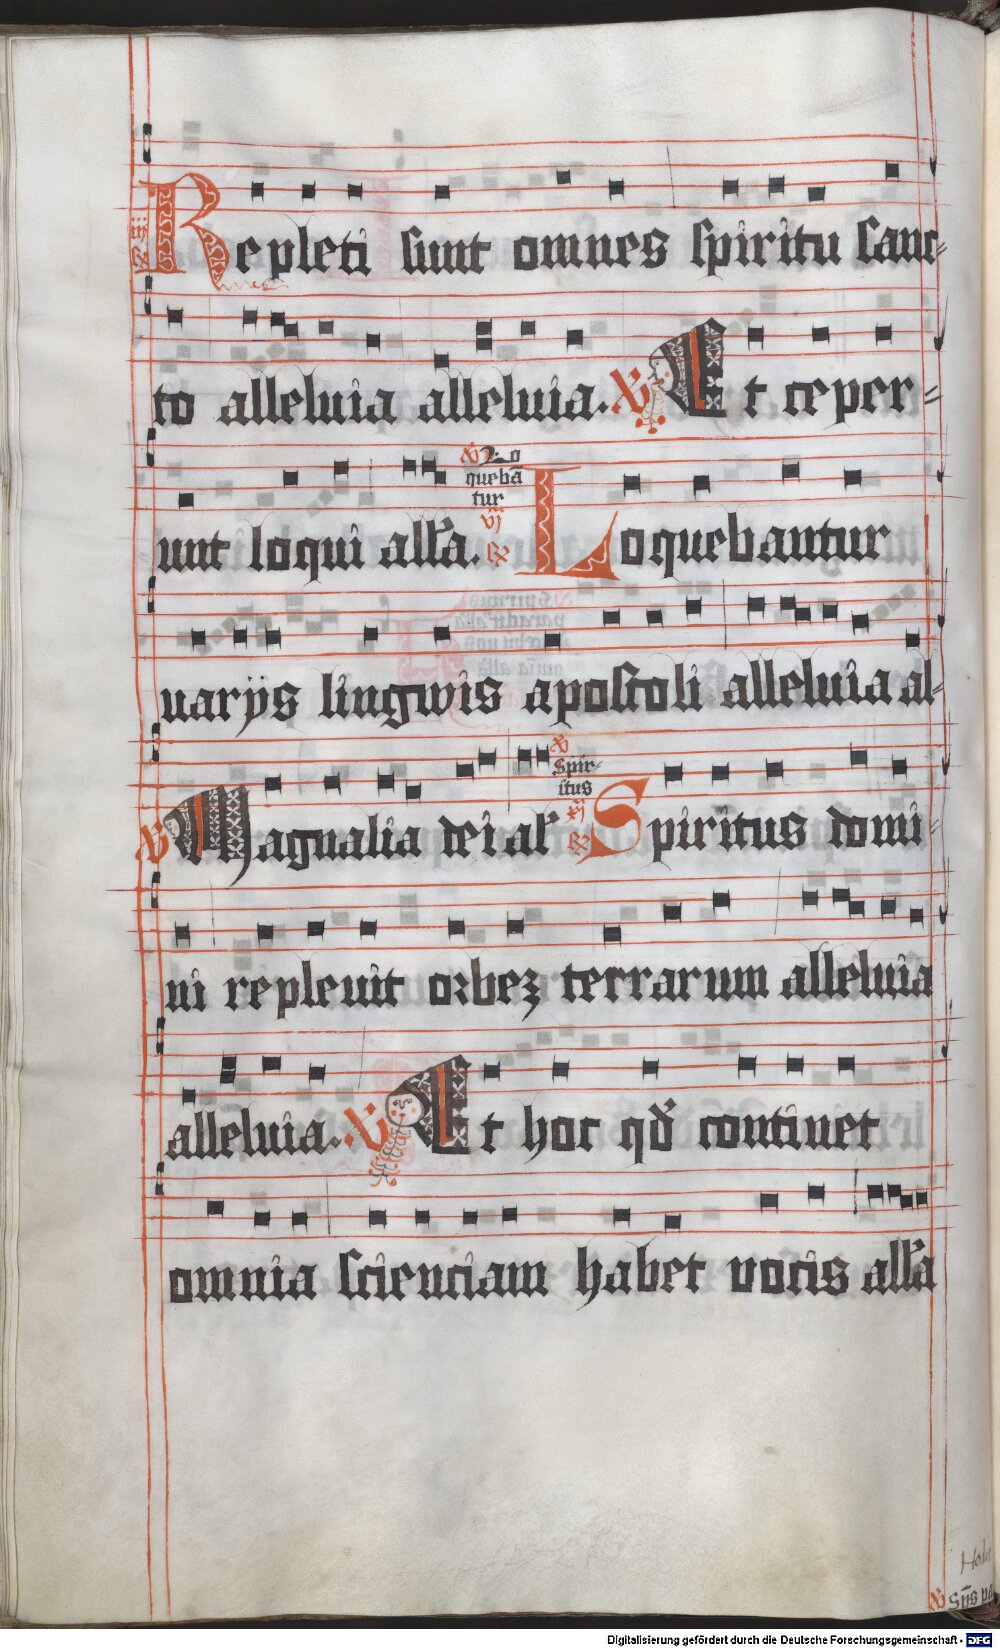 Repleti sunt omnes spiritu sanc-
to alleluia alleluia. Et ceper-
Lo
queba̅
tur
unt loqui all'a. Loquebantur
uarijs lingwis apostoli alleluia al-
Spir-
itus
Magnalia dei al' Spiritus domi-
ni repleuit orbez terrarum alleluia
alleluia. Et hoc qd' continet
omnia scienciam habet vocis all'a
Digitalisierung gefördert durch die Deutsche Forschungsgemeinschaft - DFG